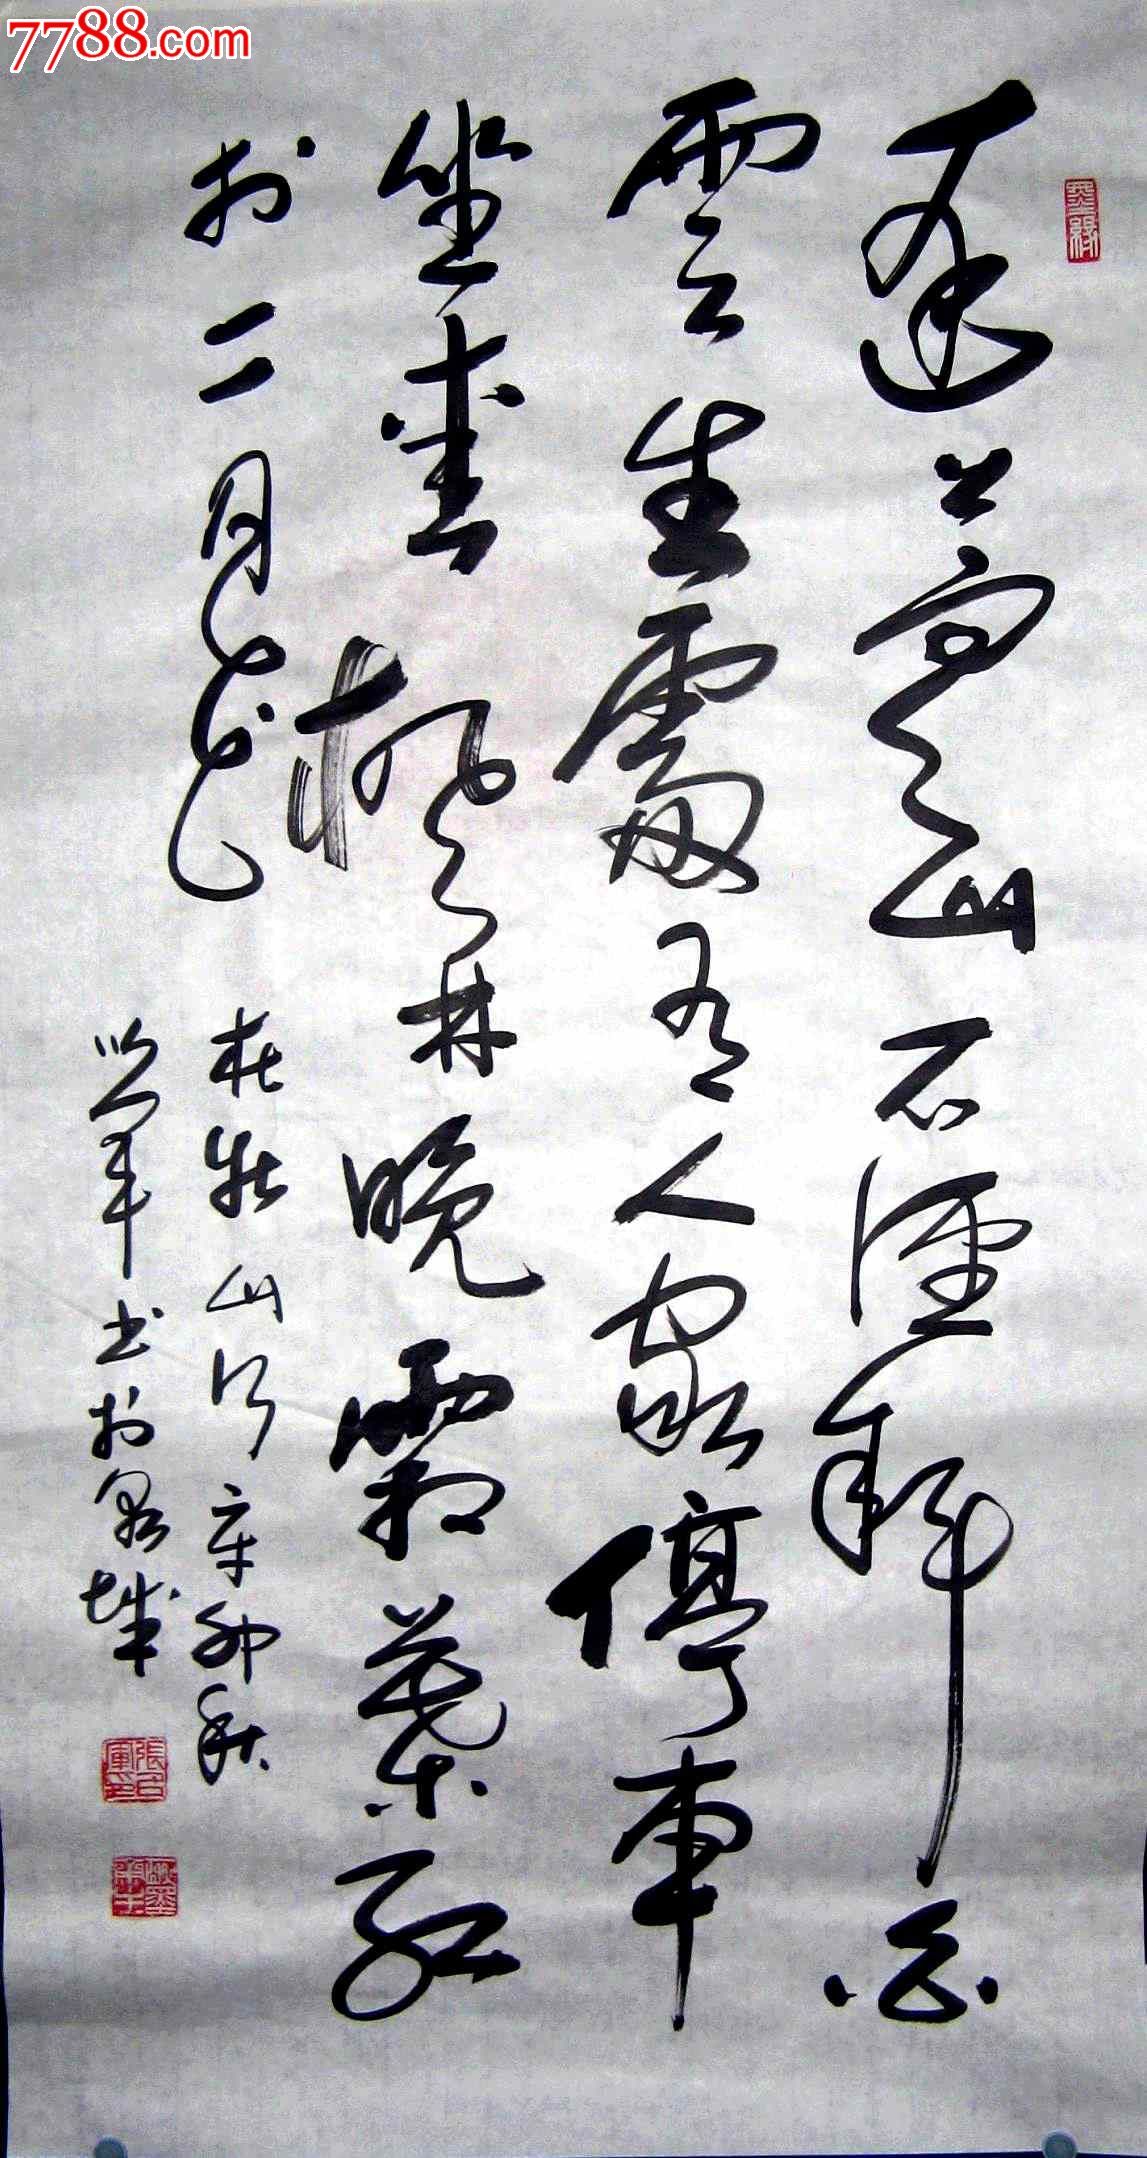 7788.com
遠上寒山石徑斜白
雲生處有人家停車
坐愛楓林晚霜葉紅
於二月花
杜牧山行辛卯秋
軍书於泉城